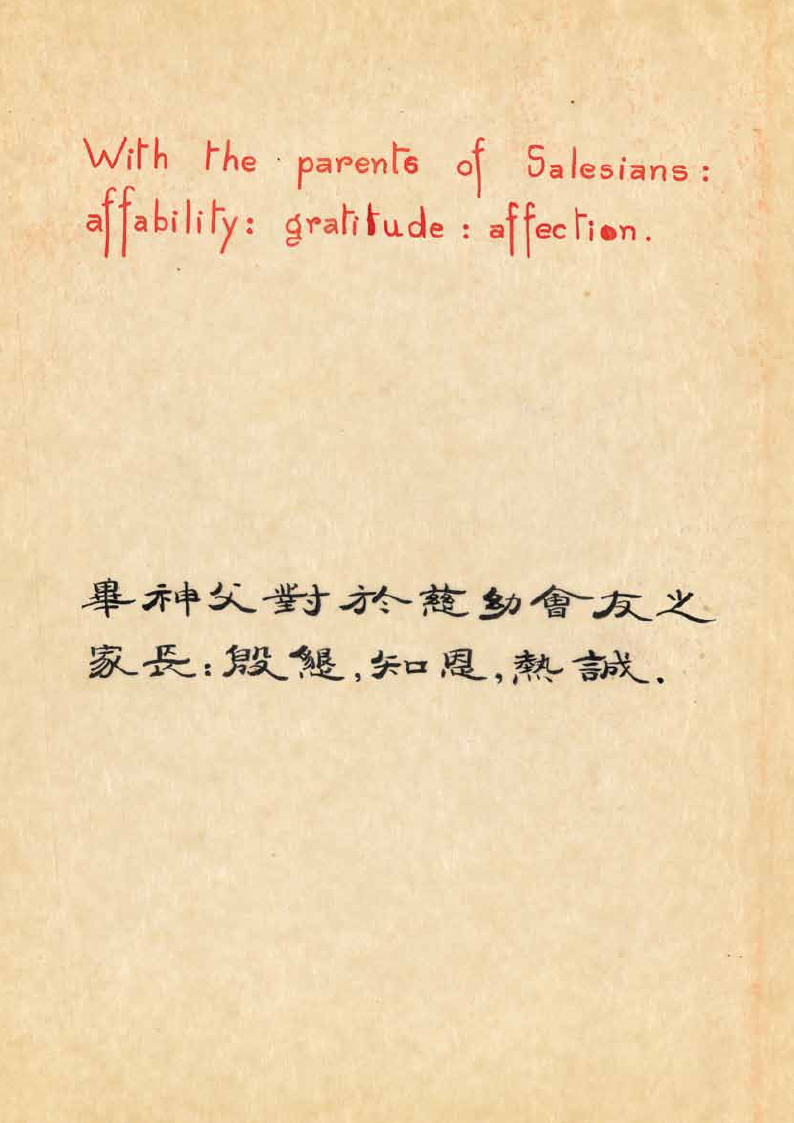 With the parents of Salesians :
affability: gratitude : affection.
畢神父對於慈幼會友之
家長:殷懇,知恩,熱誠.